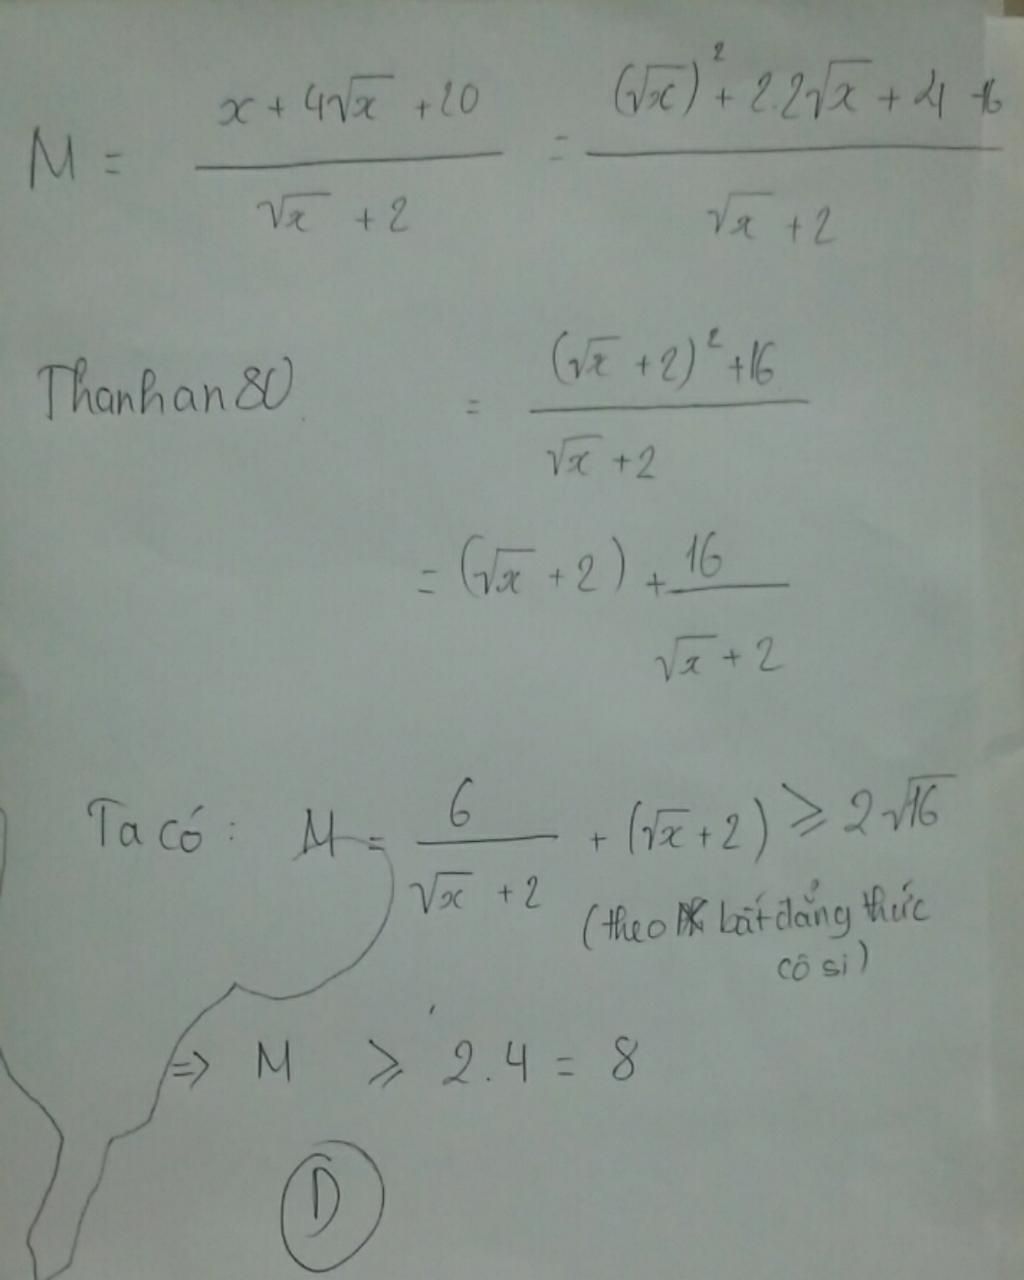 M = \frac{x + 4\sqrt{x} + 20}{\sqrt{x} + 2} = \frac{(\sqrt{x})^2 + 2.2\sqrt{x} + 4 + 16}{\sqrt{x} + 2}
Thanhan80
= \frac{(\sqrt{x} + 2)^2 + 16}{\sqrt{x} + 2}
= (\sqrt{x} + 2) + \frac{16}{\sqrt{x} + 2}
Ta có : M = \frac{6}{\sqrt{x} + 2} + (\sqrt{x} + 2) ≥ 2\sqrt{16}
(theo bất đẳng thức
cô si)
=> M ≥ 2.4 = 8
D